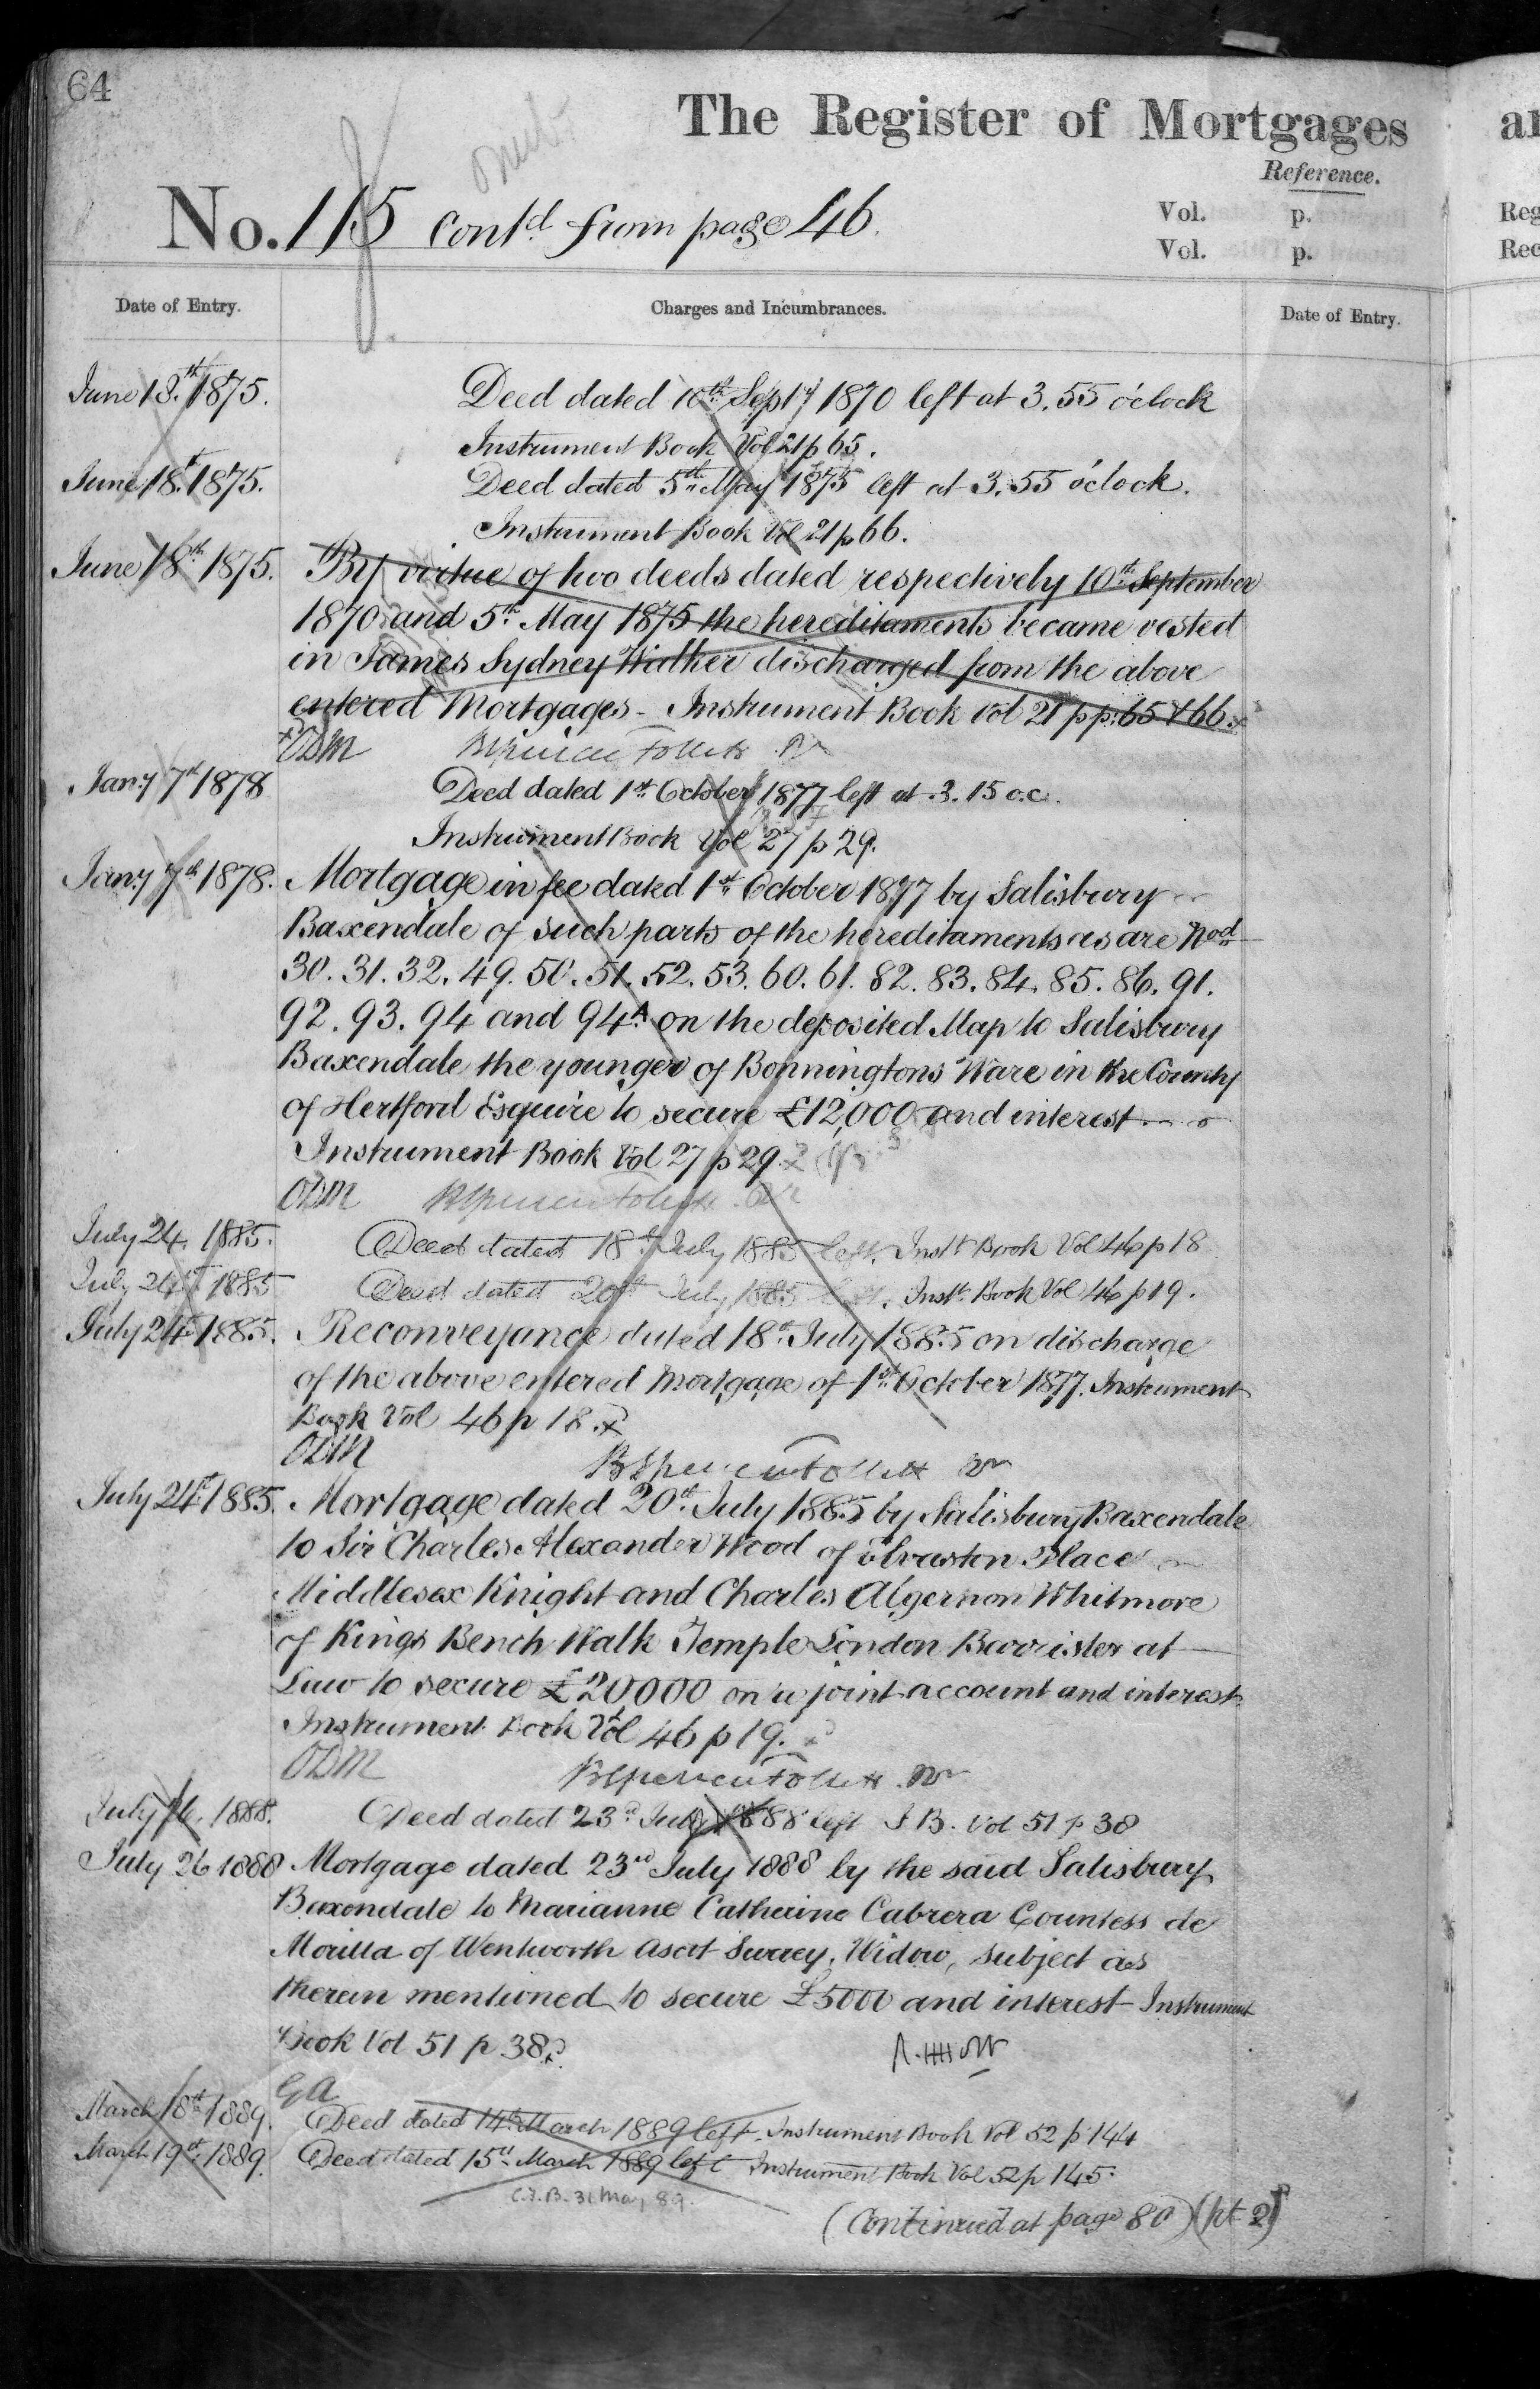 64
The Register of Mortgages
Reference.
No. 115 Contd from page 46.
Vol. p.
Vol. p.
Reg
Rec
Date of Entry.
Charges and Incumbrances.
Date of Entry.
June 18.th 1875. Deed dated 10th Sept 1870 left at 3.55 o'clock
Instrument Book Vol 21 p 65.
June 18th 1875. Deed dated 5th May 1875 left at 3.55 o'clock.
Instrument Book Vol 21 p 66.
June 18th 1875. By virtue of two deeds dated respectively 10th September
1870 and 5th May 1875 the hereditaments became vested
in James Sydney Walker discharged from the above
entered Mortgages - Instrument Book Vol 21 pp: 65 & 66.
ODM
Jany 7th 1878 Deed dated 1st October 1877 left at 3.15 o.c.
Instrument Book Vol 27 p 29.
Jany 7th 1878. Mortgage in fee dated 1st October 1877 by Salisbury
Baxendale of such parts of the hereditaments as are Nod
30. 31. 32. 49. 50. 51. 52. 53. 60. 61. 82. 83. 84. 85. 86. 91.
92. 93. 94 and 94A on the deposited Map to Salisbury
Baxendale the younger of Bonningtons Ware in the County
of Hertford Esquire to secure £12,000 and interest
Instrument Book Vol 27 p 29.
ODM
July 24. 1885. Deed dated 18th July 1885 left. Instt Book Vol 46 p 18
July 24th 1885 Deed dated 20th July 1885 left. Instt Book Vol 46 p 19.
July 24th 1885. Reconveyance dated 18th July 1885 on discharge
of the above entered Mortgage of 1st October 1877. Instrument
Book Vol 46 p 18.
ODM
July 24th 1885. Mortgage dated 20th July 1885 by Salisbury Baxendale
to Sir Charles Alexander Wood of Elvaston Place
Middlesex Knight and Charles Algernon Whitmore
of Kings Bench Walk Temple London Barrister at
Law to secure £20,000 on a joint account and interest
Instrument Book Vol 46 p 19.
ODM
July 26. 1888. Deed dated 23rd July 1888 left I.B. Vol 51 p 38
July 26 1888 Mortgage dated 23rd July 1888 by the said Salisbury
Baxendale to Marianne Catherine Cabrera Countess de
Morilla of Wentworth Ascot Surrey, Widow, subject as
therein mentioned to secure £5000 and interest Instrument
Book Vol 51 p 38.
GA
March 18th 1889. Deed dated 14th March 1889 left. Instrument Book Vol 52 p 144
March 19th 1889. Deed dated 15th March 1889 left Instrument Book Vol 52 p 145.
C.F.B. 31 May 89.
(Continued at page 80) (pt 2)